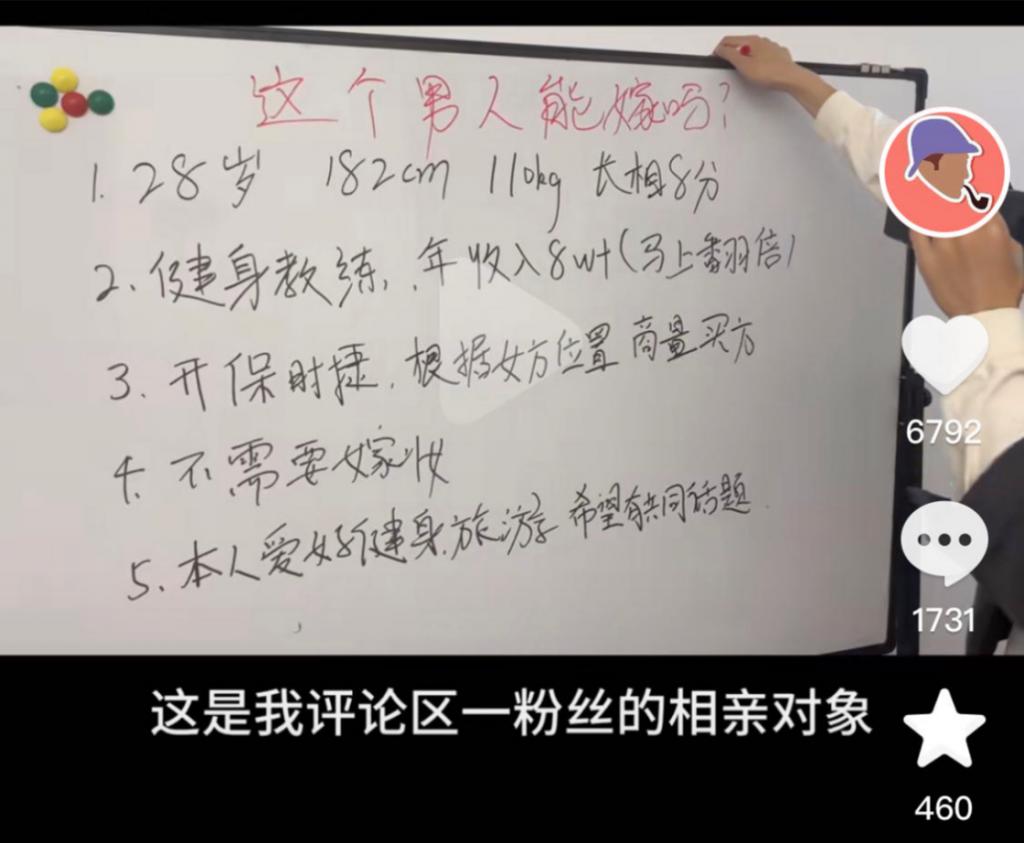 这个男人能嫁吗？
1. 28岁 182cm 110kg 长相8分
2. 健身教练，年收入8w+（马上翻倍）
3. 开保时捷，根据女方位置 商量买方
4. 不需要嫁妆
5. 本人爱好健身旅游 希望有共同话题
6792
1731
这是我评论区一粉丝的相亲对象
460